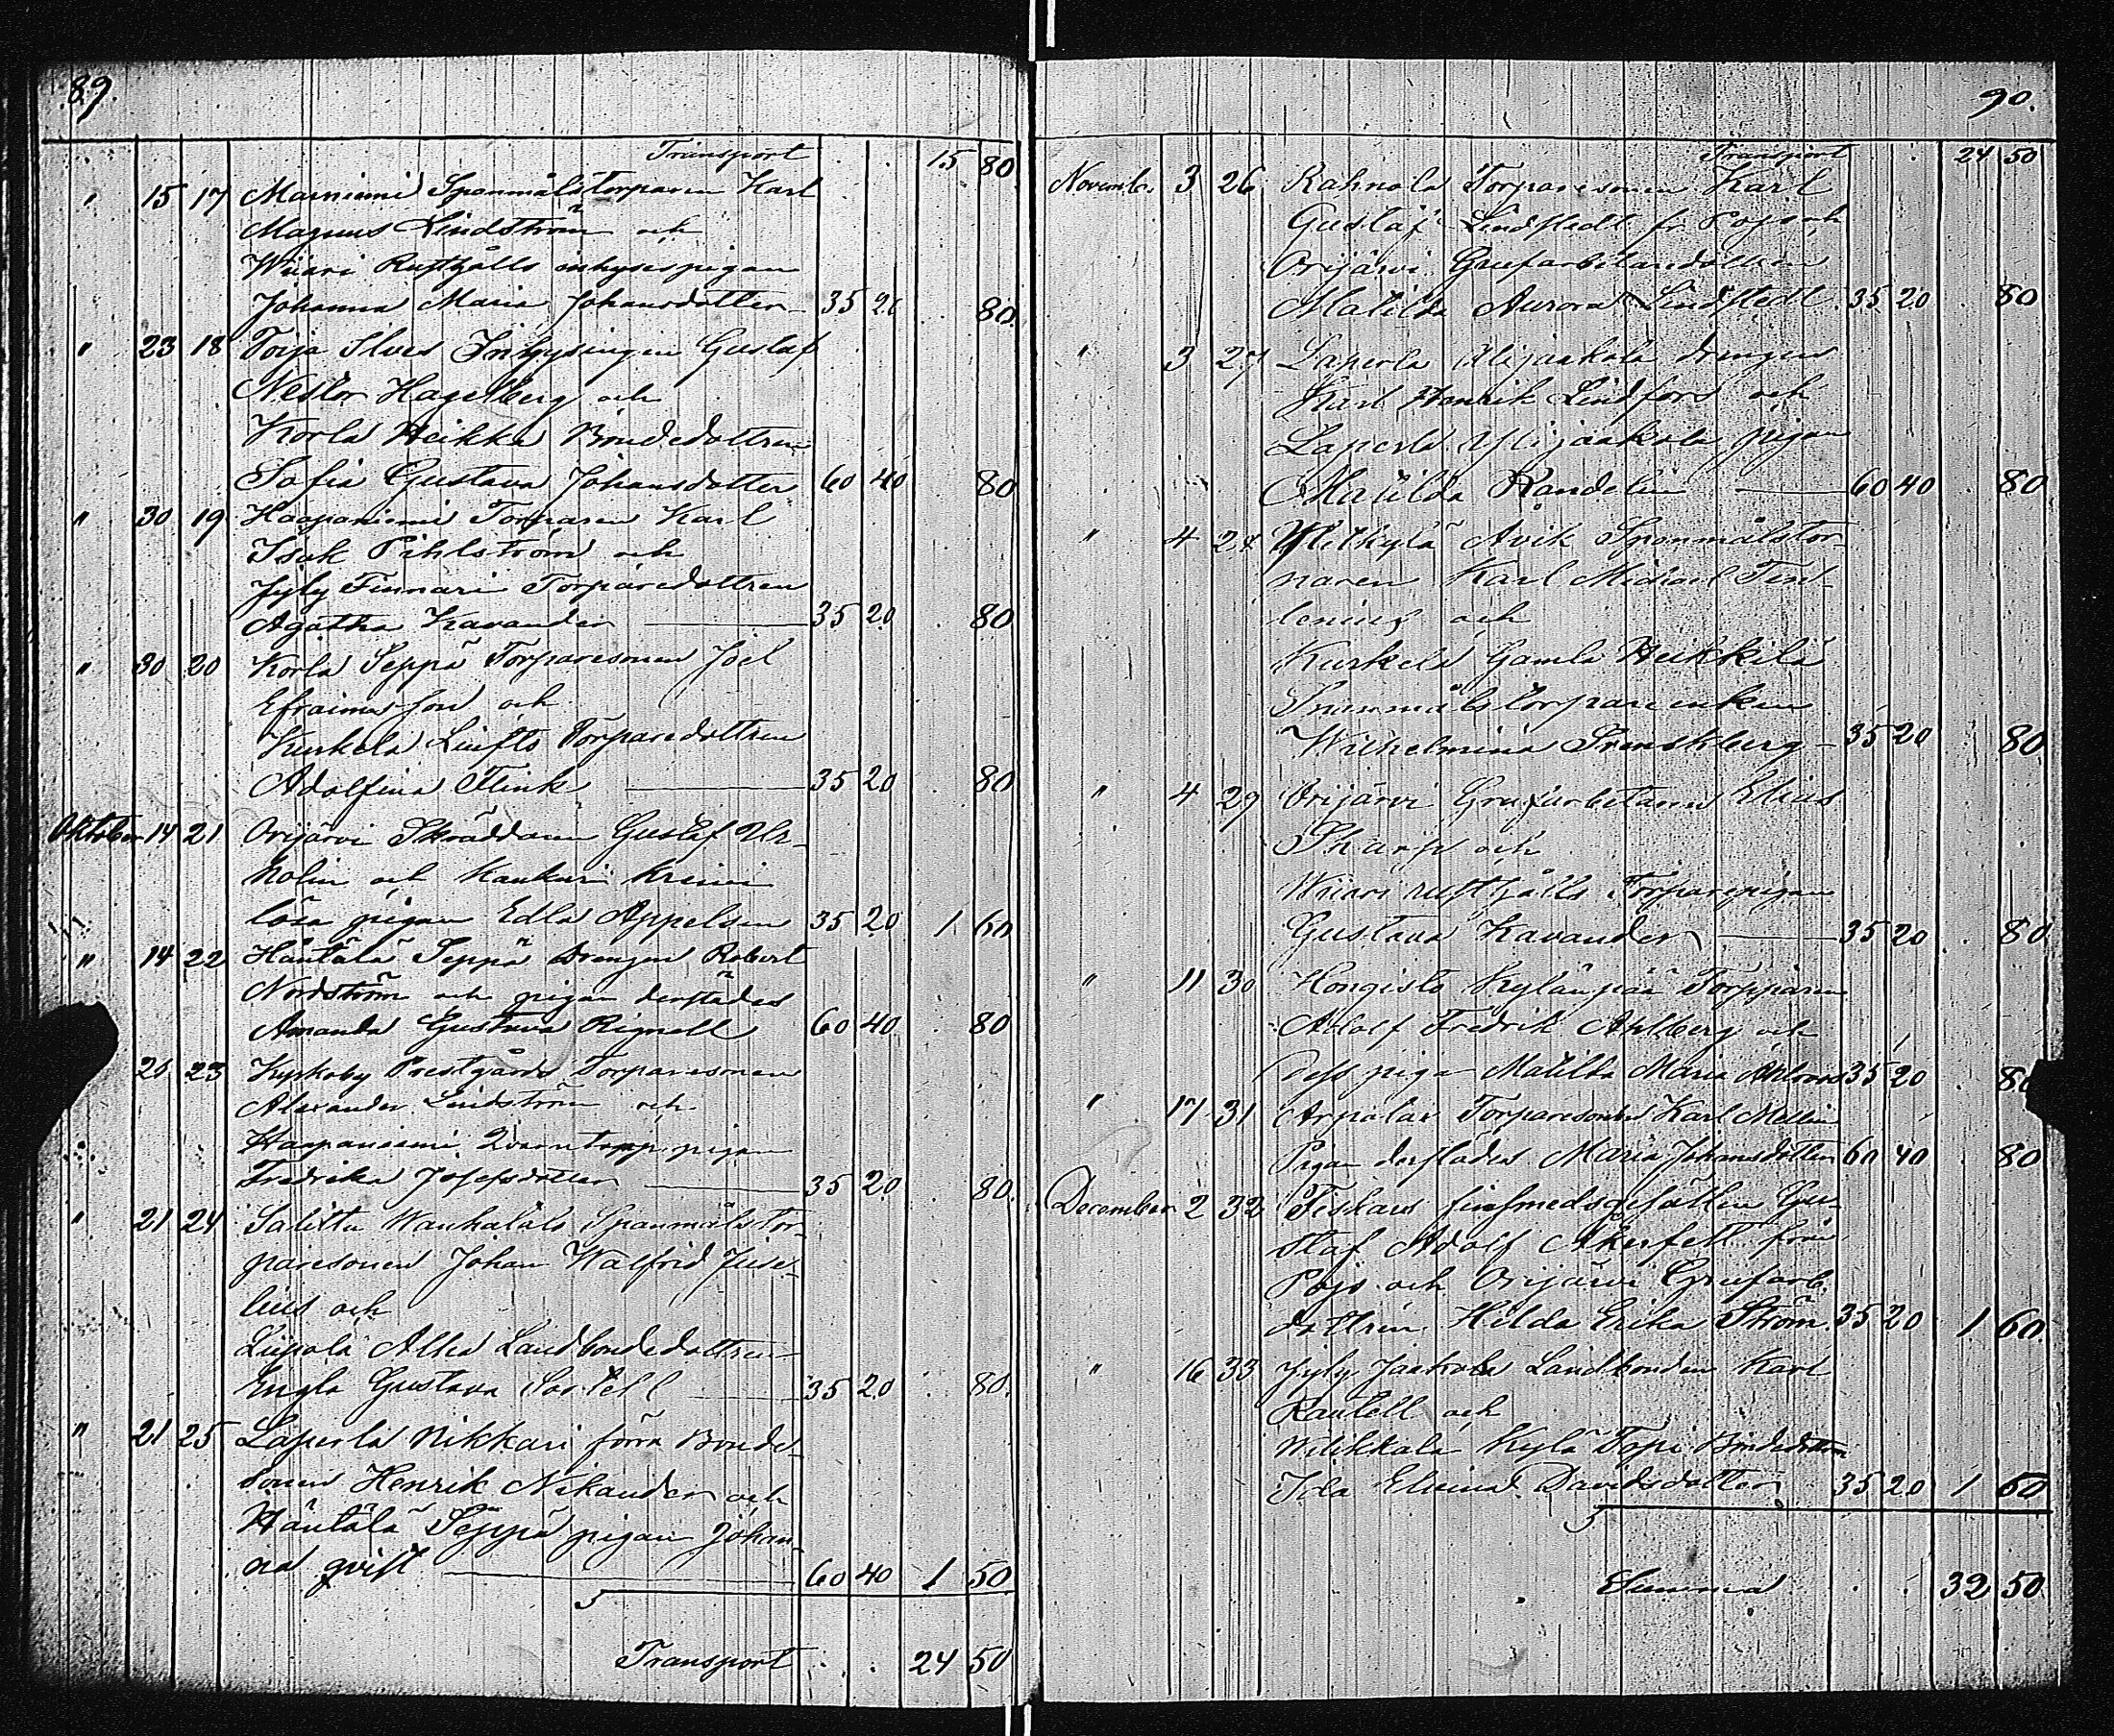 89.
Transport 15 80
" 15 17 Marniemi Spanmålstorparen Karl
Magnus Lindström och
Wiiari Rusthålls inhysespigan
Johanna Maria Johansdotter 35 20 80
" 23 18 Toija Slves Inhysingen Gustaf
Nestor Hagelberg och
Korla Heikka Bondedottren
Sofia Gustava Johansdotter 60 40 80
" 30 19 Haapaniemi Torparen Karl
Isak Pihlström och
Jyly Finnari Torparedottren
Agatha Kavander 35 20 80
" 30 20 Korla Seppä Torparesonen Joel
Efraimsson och
Kurkela Torparedottren
Adolfina Flink 35 20 80
Oktober 14 21 Orijärvi Skräddaren Gustaf Ul-
Molin och Kaukuri
lösa pigan Edla Appelsin 35 20 1 60
" 14 22 Häntälä Seppä Drengen Robert
Nordström och pigan derstädes
Amanda Gustava Rignell 60 40 80
21 23 Kyrkoby Prestgårds Torparesonen
Alexander Lindström och
Haapaniemi Qvarntorp pigan
Fredrika Josefsdotter 35 20 80
" 21 24 Salittu Wanhatalo Spanmålstor-
paresonen Johan Walfrid Juse-
lius och
Liipola Alhea Landbondedottren
Engla Gustava Sartell 35 20 80
" 21 25 Laperla Nikkari förra Bonde-
sonen Henrik Nikander och
Häntälä Seppä pigan Johan-
na qvist 60 40 1 50
Transport 24 50
90.
Transport 24 50
November 3 26 Rahnola Torparesonen Karl
Gustaf Lindstedt fr. Pojo och
Orijärvi Grufarbetaredottren
Matilda Aurora Lindstedt 35 20 80
" 3 27 Laperla Ylijaakola drengen
Karl Henrik Lindfors och
Laperla Ylijaakola pigan
Matilda Randelin 60 40 80
" 4 28 Arik Spanmålstor-
paren Karl Michael Ten-
lenius och
Kurkela Gamla Heikkilä
Spanmålstorpareenkan
Wilhelmina Svenskberg 35 20 80
" 4 29 Orijärvi Grufarbetaren Elias
Skarp och
Wiiari rusthålls Torparepigan
Gustava Kavander 35 20 80
" 11 30 Hongisto Kylänpää Torparen
Adolf Fredrik Ahlberg och
dess piga Matilda Maria 35 20 80
" 17 31 Arpalax Torparesonen Karl Mellin
Pigan derstädes Maria Johansdotter 60 40 80
December 2 32 Fiskars finsmedsgesällen Gu-
staf Adolf Åkerfelt från
Pojo och Orijärvi Grufarb.
dottren Hilda Erika Ström 35 20 1 60
" 16 33 Jyly Jaakola Landbonden Karl
Rautell och
Wilikkala Kylä Topi Bondedottren
Ida Elviina Davidsdotter 35 20 1 60
Summa 32 50